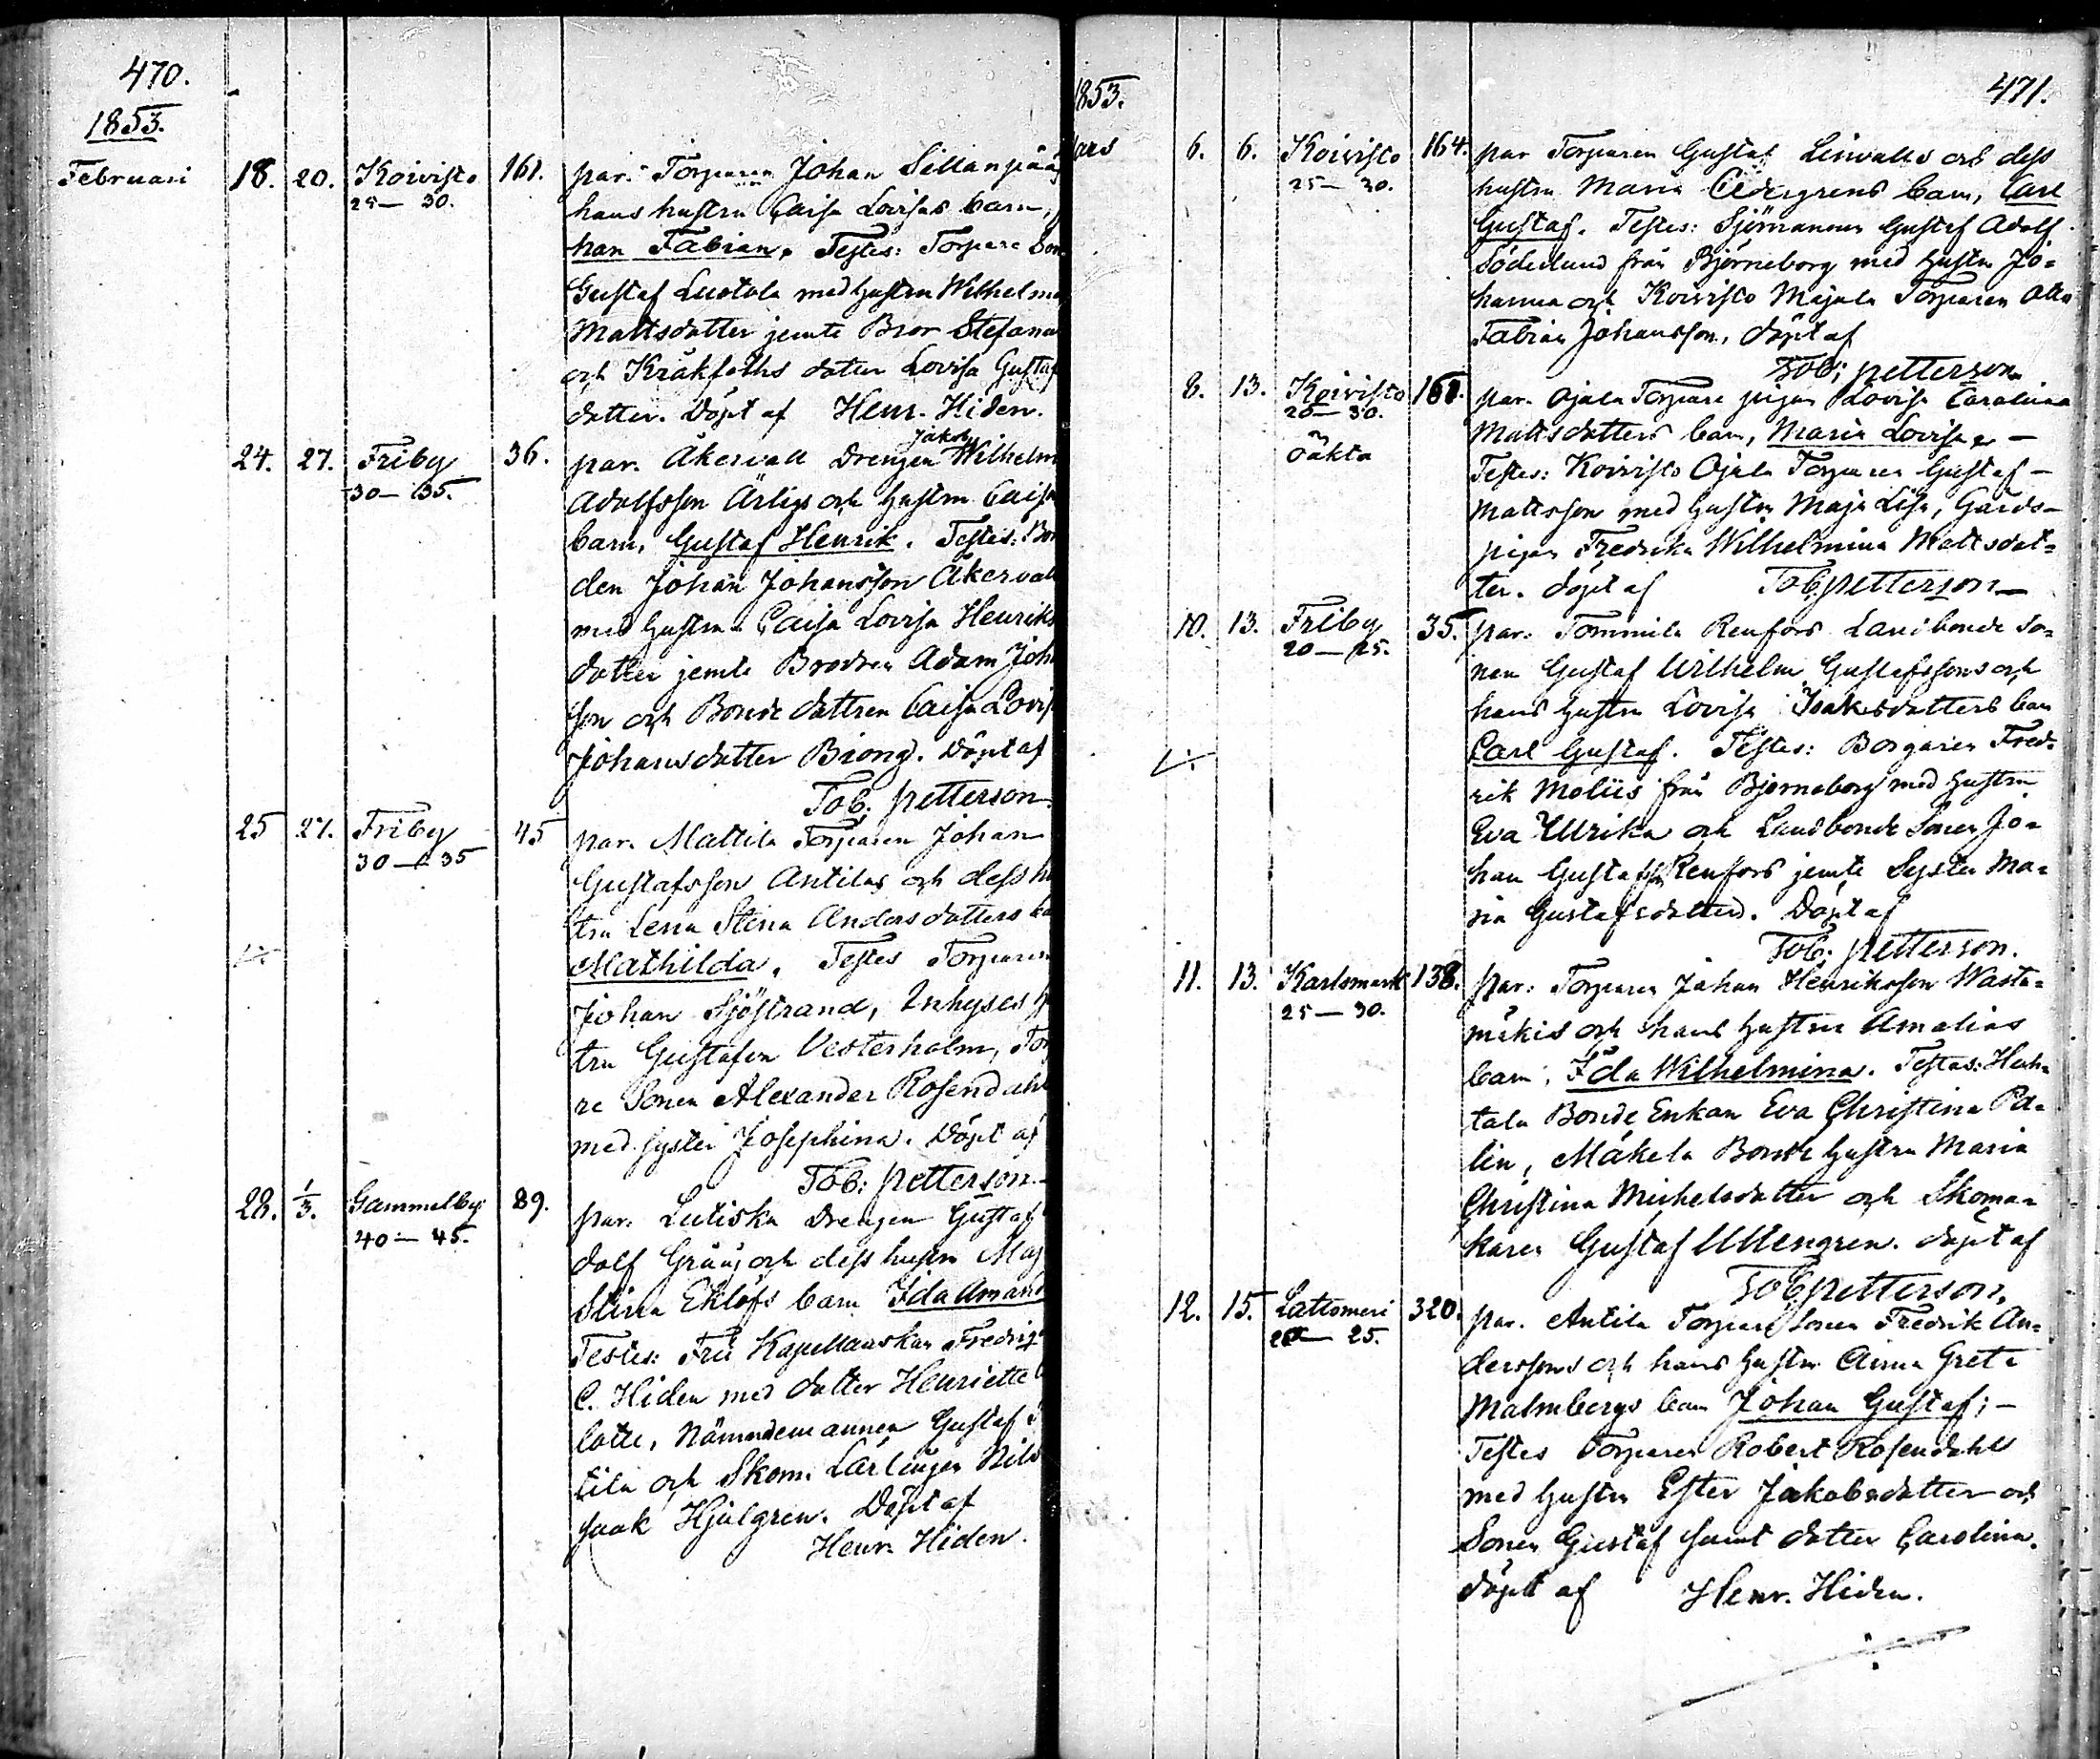 470.
1853.
Februari 18. 20. Koivisto 161. par. Torparen Johan Sillanpää
25 — 30. hans hustru Caisa Lovisas barn,
han Fabian. Testes: Torpare Son
Gustaf Luotola med hustru Wilhelma
Mattsdotter jemte Bror Stefanus
och Kråkfoths dotter Lovisa Gustaf
dotter. Döpt af Henr. Hiden.
Jakob
24. 27. Friby 36. par. Åkervall Drengen Wilhelm
30 — 35. Adolfsson Ärligs och hustru Caisa
barn, Gustaf Henrik. Testes: Bon
den Johan Johansson Åkervall
med hustru Caisa Lovisa Henriks
dotter jemte Brodren Adam Joh
son och Bonde dottren Caisa Lovis
Johansdotter Biong. Döpt af
Tob. petterson.
25 27. Friby 45 par. Mattila Torparen Johan
30 — 35 Gustafsson Antilas och dess hu
tru Lena Stina Andersdotters ba
Mathilda. Testes Torparen
Johan Sjöstrand, Inhyses hu
tru Gustafva Vesterholm, Tor
re Sonen Alexander Rosendahl
med syster Josephina. Döpt af
Tob: petterson.
28. 1/3. Gammelby 89. par. Lutiska Drengen Gustaf
40 — 45. dolf Grääs och dess hustru Maj
Stina Eklöfs barn Ida Amand
Testes: Fru Kapellanskan Fredriqu
C. Hiden med dotter Henriette
lotte, Nämndemannen Gustaf
tila och Skom. Lärlingen Nils
saak Hjulgren. Döpt af
Henr. Hiden.
471.
1853.
ars 6. 6. Koivisto 164. par Torparen Gustaf Linvalls och dess
25 — 30. hustru Maria Cedergrens barn, Carl
Gustaf. Testes: Sjömannen Gustaf Adolf
Söderlund från Björneborg med hustru Jo=
hanna och Koivisto Majala Torparen Otto
Fabian Johansson, döpt af
Tob; petterson
8. 13. Koivisto 161. par. Ojala Torpare pigan Lovisa Carolina
25 — 30. Mattsdotters barn, Maria Lovisa, —
oäkta Testes: Koivisto Ojala Torparen Gustaf —
Mattsson med hustru Maja Lisa, Gårds—
pigan Fredrika Wilhelmina Mattsdot=
ter. döpt af Tob. petterson—
10. 13. Friby 35. par. Tommila Renfors Landbonde So=
20 — 25. nen Gustaf Wilhelm Gustafssons och
hans hustru Lovisa Isaksdotters barn
Carl Gustaf. Testes: Borgaren Fred=
rik Moliis från Björneborg med hustru
Eva Ullrika och Landbonde Sonen Jo=
han Gustafsson Renfors jemte Syster Ma=
ria Gustafsdotter. Döpt af
Tob. petterson.
11. 13. Karlsmark 138. par: Torparen Johan Henriksson Wasta=
25 — 30. mäkis och hans hustru Amalias
barn, Ida Wilhelmina. Testes: Huh=
tala Bonde Enkan Eva Christina Pa=
lin, Mäkelä Bonde hustru Maria
Christina Michelsdotter och Skoma=
karen Gustaf Ullengren. döpt af
Tob petterson.
12. 15. Lattomeri 320. par. Antila Torpare Sonen Fredrik An=
20 — 25. derssons och hans hustru Anna Greta
Malmbergs barn Johan Gustaf; —
Testes Torparen Robert Rosendahl
med hustru Ester Jakobsdotter och
Sonen Gustaf samt dotter Carolina.
döpt af Henr. Hiden.